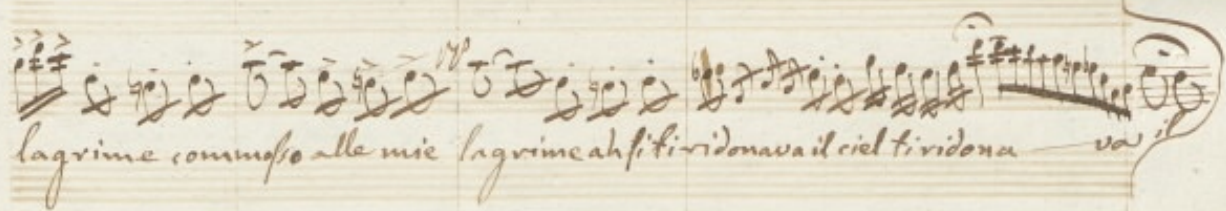 lagrime commosso alle mie lagrime ah si ti ridonava il ciel ti ridona va il